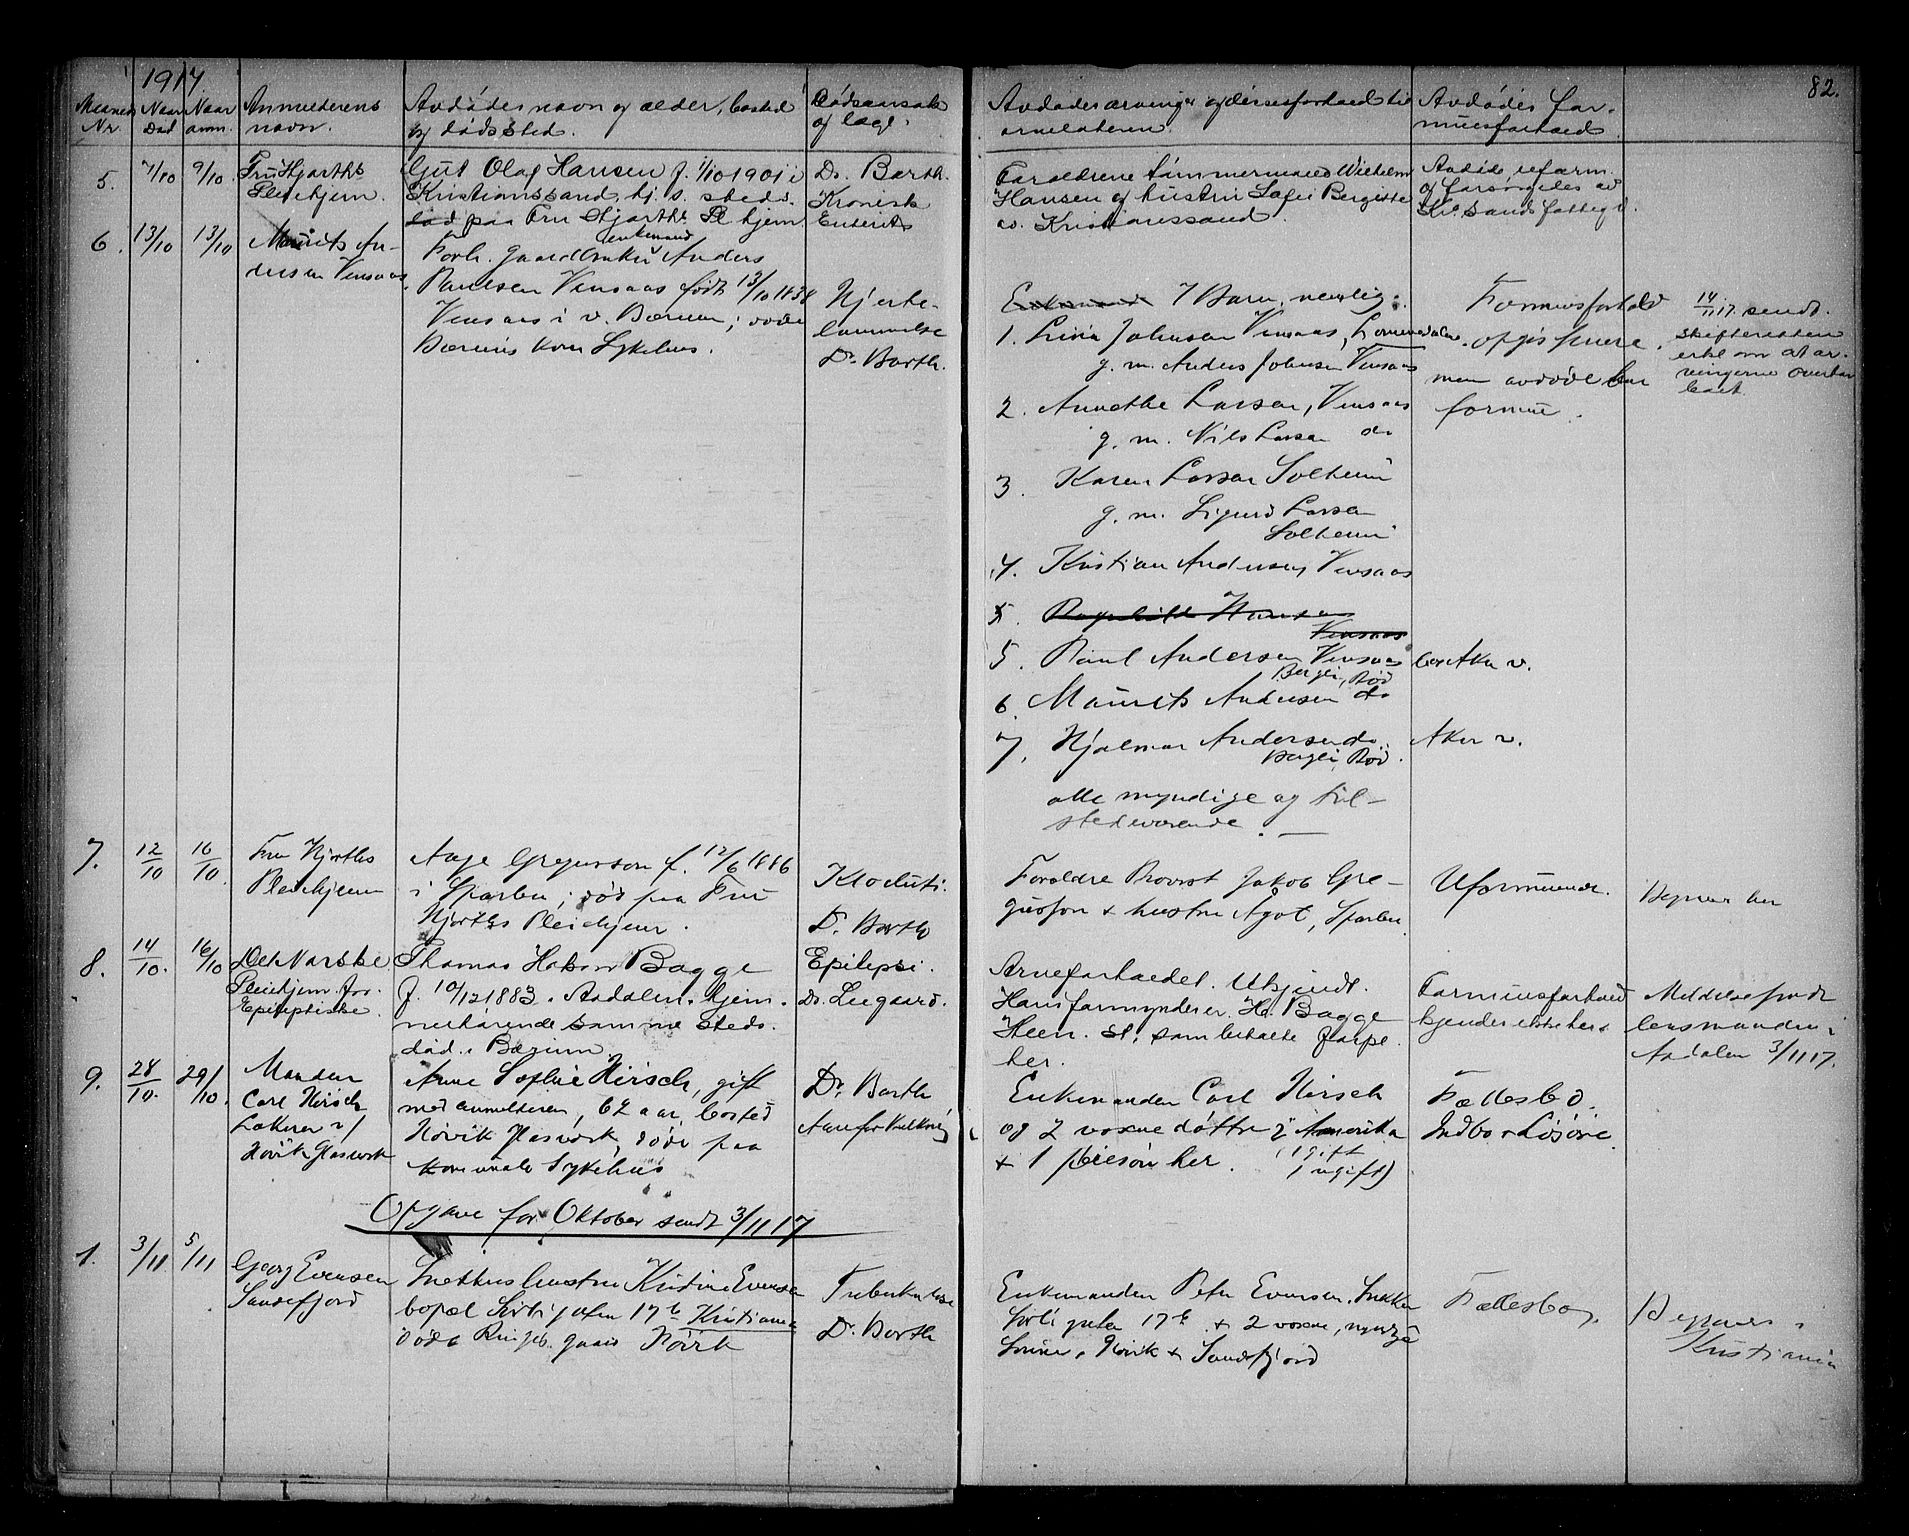 1917.
82.
Maaned Nr.
Naar Død
Naar anm.
Anmelderens navn.
Avdødes navn og alder, bosted og dødssted.
Dødsaarsak og læge.
Avdødes arvinger og deres forhold til
Avdødes formuesforhold.
5.
7/10
9/10.
Fru Hjorths
Pleiehjem.
Gut Olaf Hansen f. 1/10 1901 i
Kristianssand, hj. s. steds.
død paa Fru Hjorths Pl. hjem
Dr. Barth.
Kronisk
Enterit
Forældrene tømmermand Wilhelm
Hansen og hustru Sofie Bergitte
av Kristianssand.
Avdøde uform.
og forsørgedes av
Kr. sands fattigv.
6.
13/10
13/10
Maurits An-
dersen Vensaas.
enkemand
Forh. gaardbruker Anders
Paulsen Vensaas født 13/10 1838
Vensaas i v. Bærum; døde
Bærums kom Sykehus.
Hjerte-
lammelse
Dr. Barth.
Enkemand 7 Barn, nemlig:
1. Lina Johnsen Vensaas, Lommedalen.
g. m. Anders Johnsen Vensaas
2. Annethe Larsen, Vensaas
g. m. Nils Larsen do
3. Karen Larsen Solheim
g. m. Sigurd Larsen
Solheim
4. Kristian Andersen, Vensaas
5. Ragnhild Hansen
Vensaas
5. Paul Andersen Vensaas bor Aker v.
Rød
6. Maurits Andersen do
7. Hjalmar Andersen do. Aker v.
Rød.
alle myndige og til-
stedeværende.
Formuesforhold
opgis senere.
men avdøde har
formue.
14/11 17. sendt
skifteretten
erkl. om at ar-
vingerne overtar
boet.
7.
12/10
16/10.
Fru Hjorths
Pleiehjem
Aage Gregusson f. 12/6 1886
i Sparbu; død paa Fru
Hjorths Pleiehjem.
Dr. Barth
Foreldre Provst Jakob Gre-
gusson + hustru Agot, Sparbu
Uformuende.
her
8.
14/10.
16/10
Det Norske
Pleiehjem for
Epileptiske.
Thomas Bagge
f. 10/12 1883. Aadalen. hjem-
mehørende samme steds.
død i Bærum
Epilepsi.
Dr. Lugaard.
Arveforholdet. Ukjendt.
Hans formynder er H. Bagge
Heen. St. som betalte for pl.
her.
Formuesforhold
kjendes ikke her
Meddelse sendt
lensmanden i
Aadalen 3/11 17.
9.
28/10.
29/10.
Manden
Carl Hirsch
Høvik Glasverk
Anne Sofie Hirsch, gift
med anmelderen, 62 aar, bosted
Høvik Glasverk, døde paa
komunale Sykehus
Dr. Barth
Enkemanden Carl Hirsch
og 2 voxne døttre i Amerika
+ 1 søn her. (1 gift
1 ugift)
Fællesbo.
Indbo + Løsøre
Opgave for Oktober sendt 3/11 17
1.
3/11
5/11
Georg Evensen
Sandefjord
Snekkerhustru Kristine Evensen
bopæl Sorligaten 17 b Kristiania
døde Høvik
Tuberkulose
Dr. Barth
Enkemanden Peter Evensen, Snekker
Sorligaten 17 b + 2 voxne, myndige
Sønner, Høvik + Sandefjord
Fællesbo.
Kristiania